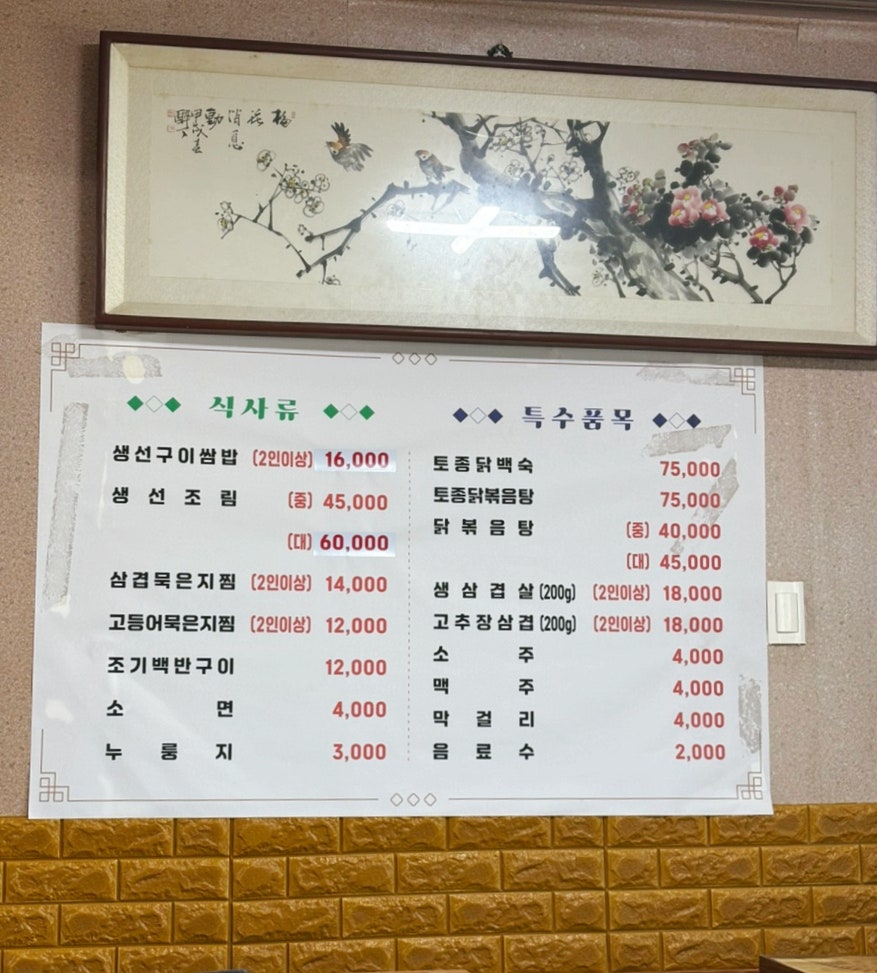 梅花
消息
動
甲戌春
식사류
생선구이쌈밥 (2인이상) 16,000
생선조림 (중) 45,000
(대) 60,000
삼겹묵은지찜 (2인이상) 14,000
고등어묵은지찜 (2인이상) 12,000
조기백반구이 12,000
소면 4,000
누룽지 3,000
특수품목
토종닭백숙 75,000
토종닭볶음탕 75,000
닭볶음탕 (중) 40,000
(대) 45,000
생삼겹살(200g) (2인이상) 18,000
고추장삼겹(200g) (2인이상) 18,000
소주 4,000
맥주 4,000
막걸리 4,000
음료수 2,000